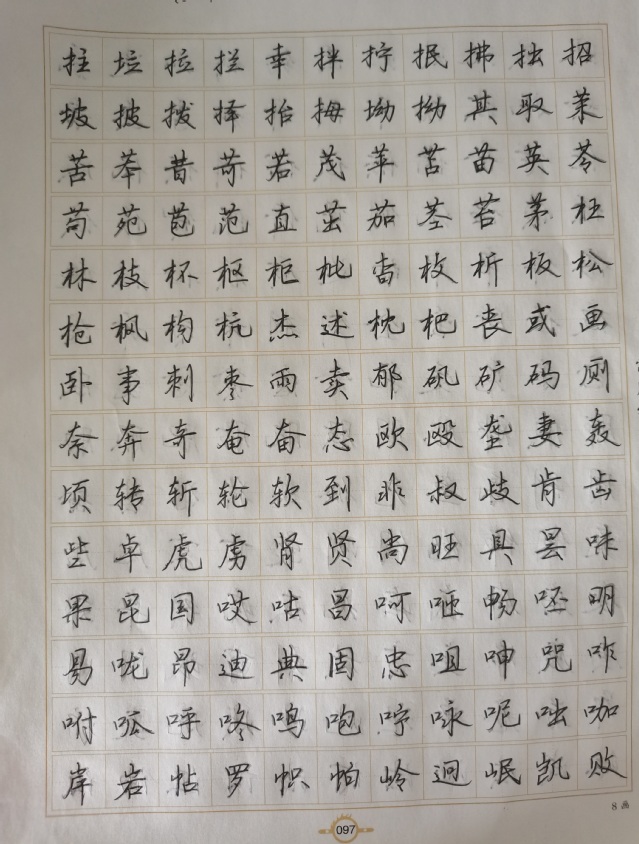 拄垃拉拦幸拌拧抿拂拙招
坡披拨择抬拇坳拗其取茉
苦苯昔苛若茂苹苫苗英苓
苟苑苞范直茁茄茎苔茅枉
林枝杯枢柜枇杳枚析板松
枪枫构杭杰述枕杷丧或画
卧事刺枣雨卖郁矾矿码厕
奈奔奇奄奋态欧殴垄妻轰
顷转斩轮软到非叔歧肯齿
些卓虎虏肾贤尚旺具昙味
果昆国哎咕昌呵咂畅呸明
易咙昂迪典固忠咀呻咒咋
咐呱呼咚鸣咆咛咏呢咄咖
岸岩帖罗帜帕岭迥岷凯败
8画
097